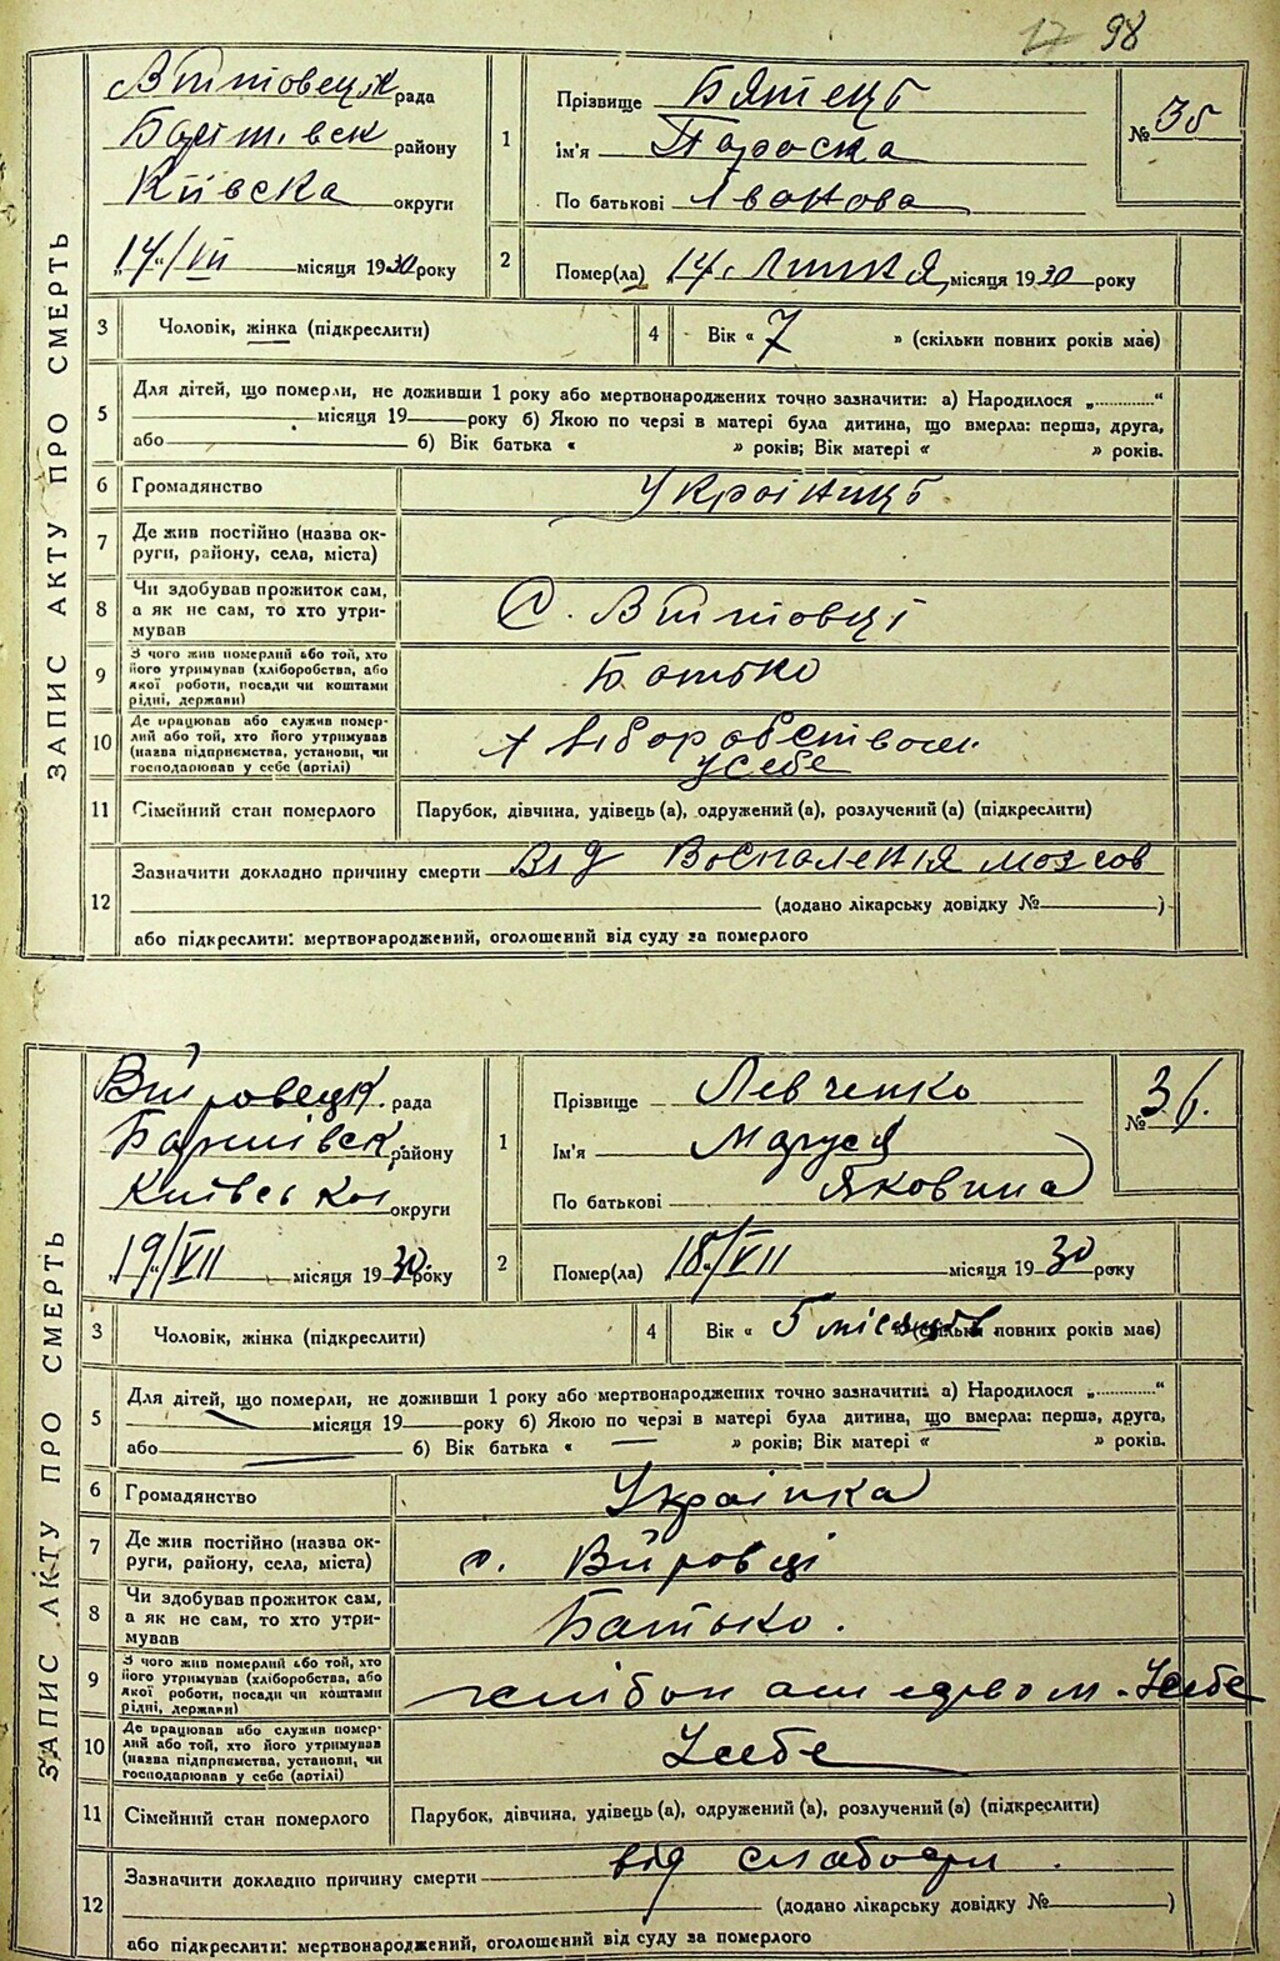 17 98
ЗАПИС АКТУ ПРО СМЕРТЬ
Витовецьк рада
Баришівськ району
Київска округи
„14“/VII місяця 1930 року
1
Прізвище Бятець
Ім'я Параска
По батькові Іванова
№ 35
2
Помер(ла) 14. Липня місяця 1930 року
3 Чоловік, жінка (підкреслити)
4 Вік « 7 » (скільки повних років має)
5 Для дітей, що померли, не доживши 1 року або мертвонароджених точно зазначити: а) Народилося „ “
місяця 19 року б) Якою по черзі в матері була дитина, що вмерла: перша, друга,
або б) Вік батька « » років; Вік матері « » років.
6 Громадянство Україниць
7 Де жив постійно (назва ок-
руги, району, села, міста)
8 Чи здобував прожиток сам,
а як не сам, то хто утри-
мував
С.
9 З чого жив померлий або той, хто
його утримував (хліборобства, або
якої роботи, посади чи коштами
рідні, держави)
Батько
10 Де працював або служив помер-
лий або той, хто його утримував
(назва підприємства, установи, чи
господарював у себе (артілі)
хліборобством
усебе
11 Сімейний стан померлого Парубок, дівчина, удівець (а), одружений (а), розлучений (а) (підкреслити)
12 Зазначити докладно причину смерти Від Воспаленія мозгов
(додано лікарську довідку № )
або підкреслити: мертвонароджений, оголошений від суду за померлого
ЗАПИС АКТУ ПРО СМЕРТЬ
рада
району
округи
„19“/VII місяця 1930 року
1
Прізвище Левченко
Ім'я Маруся
По батькові Яковина
№ 36.
2
Помер(ла) „18“/VII місяця 1930 року
3 Чоловік, жінка (підкреслити)
4 Вік « 5 місяців (скільки повних років має)
5 Для дітей, що померли, не доживши 1 року або мертвонароджених точно зазначити: а) Народилося „ “
місяця 19 року б) Якою по черзі в матері була дитина, що вмерла: перша, друга,
або б) Вік батька « — » років; Вік матері « » років.
6 Громадянство Українка
7 Де жив постійно (назва ок-
руги, району, села, міста)
с.
8 Чи здобував прожиток сам,
а як не сам, то хто утри-
мував
Батько.
9 З чого жив померлий або той, хто
його утримував (хліборобства, або
якої роботи, посади чи коштами
рідні, держави)
Усебе
10 Де працював або служив помер-
лий або той, хто його утримував
(назва підприємства, установи, чи
господарював у себе (артілі)
Усебе
11 Сімейний стан померлого Парубок, дівчина, удівець (а), одружений (а), розлучений (а) (підкреслити)
12 Зазначити докладно причину смерти від слабости.
(додано лікарську довідку № )
або підкреслити: мертвонароджений, оголошений від суду за померлого